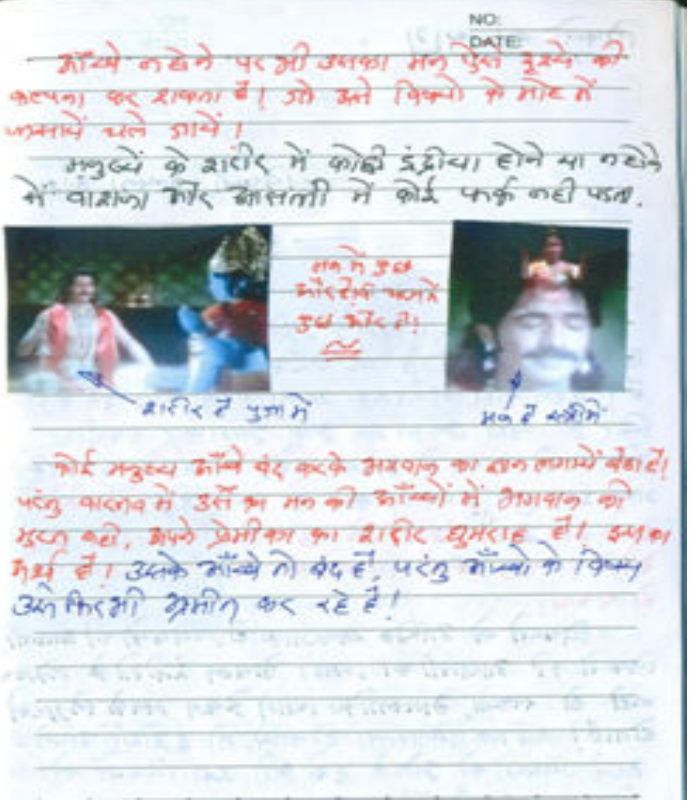 NO:
DATE:
आँख्ये न होने पर भी उसका मन ऐसे दृश्ये की
कल्पना कर शकता है। जो उसे विषयो के मोह में
फसायें चले जायें।
मनुष्यें के शरीर में कोही इंद्रीया होने या न होने
में वाशना और आसक्ती में कोई फर्क नही पडता.
मन में कुछ
और है
कुछ और है।
शरीर है पुजा में
मन है स्त्री में
कोई मनुष्य आँख्ये बंद करके भगवान का ध्यान लगायें बैठा है।
परंतु वास्तव में उसे मन की आँख्यों में भगवान की
मुरत नही, अपने प्रेमीका का शरीर घुमराह है। इसका
अर्थ है। उसके आँख्ये तो बंद है, परंतु आँख्यो के विषय
उसे फिर भी भ्रमीत कर रहे है।